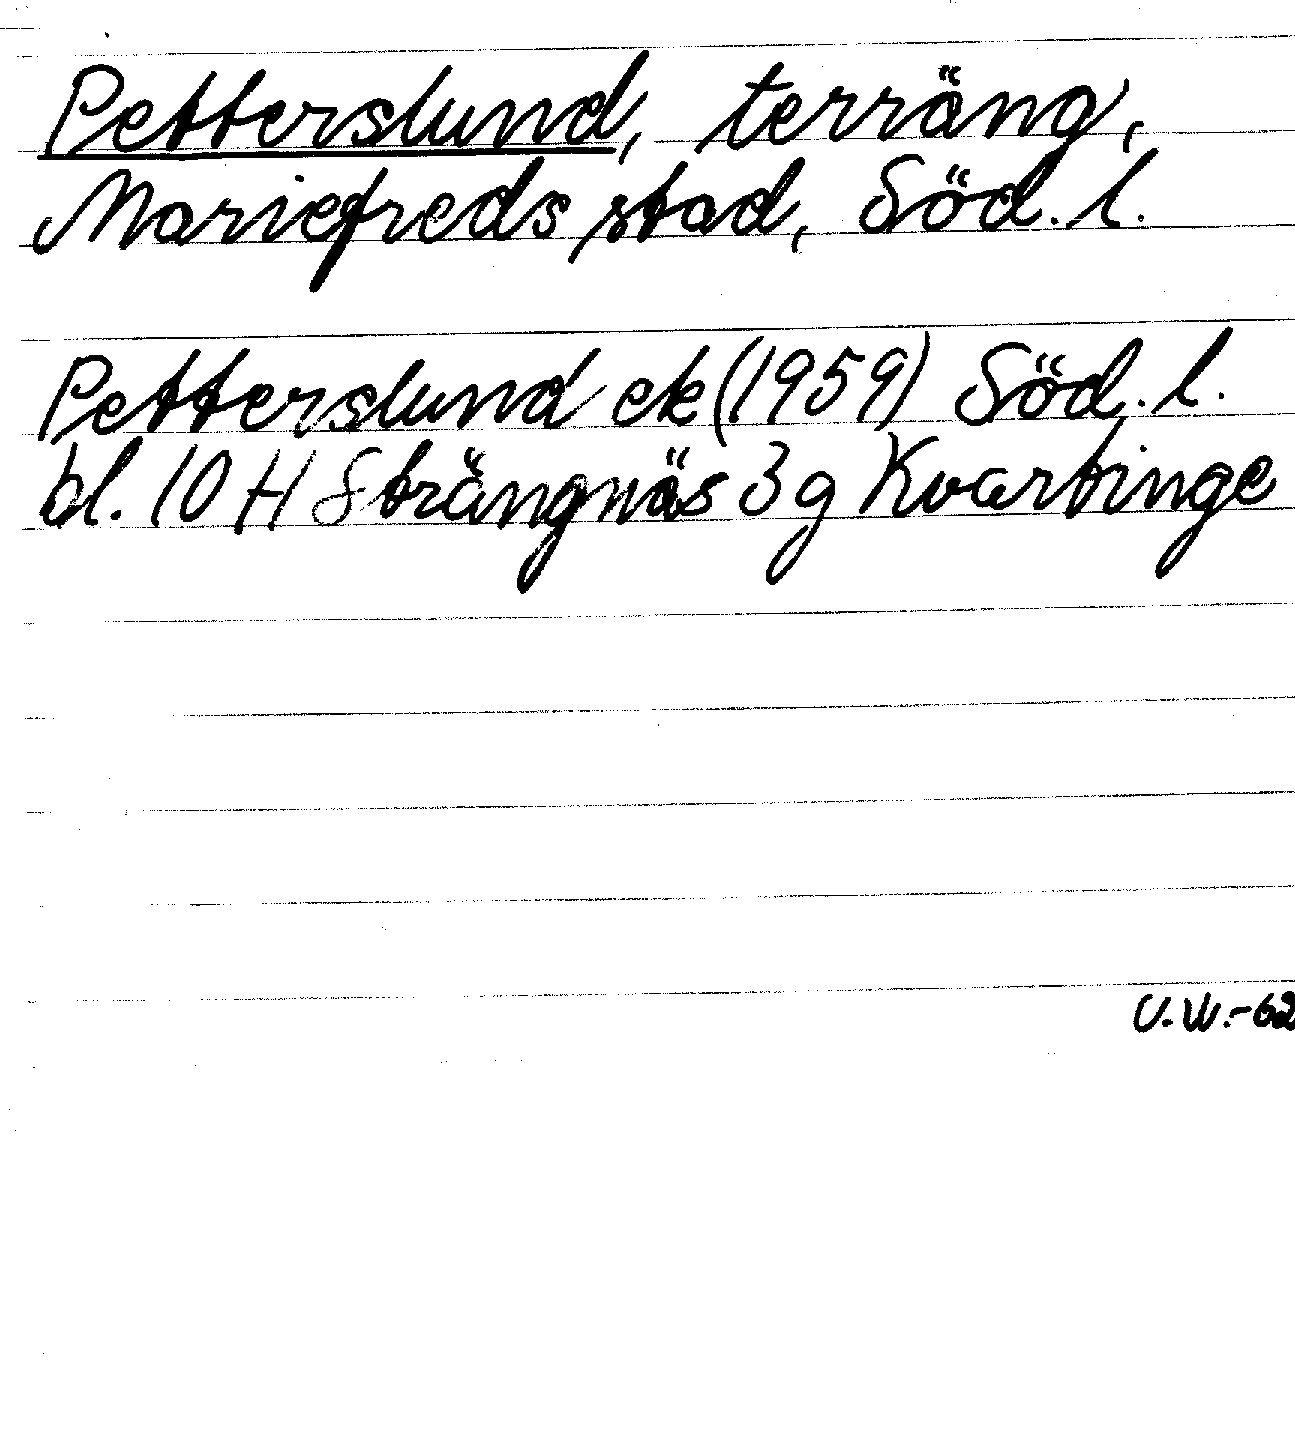 Petterslund, terräng,
Mariefreds stad, Söd. l.
Petterslund ek (1959) Söd. l.
bl. 10 H Strängnäs 3 g Kvartinge
U.W.-62